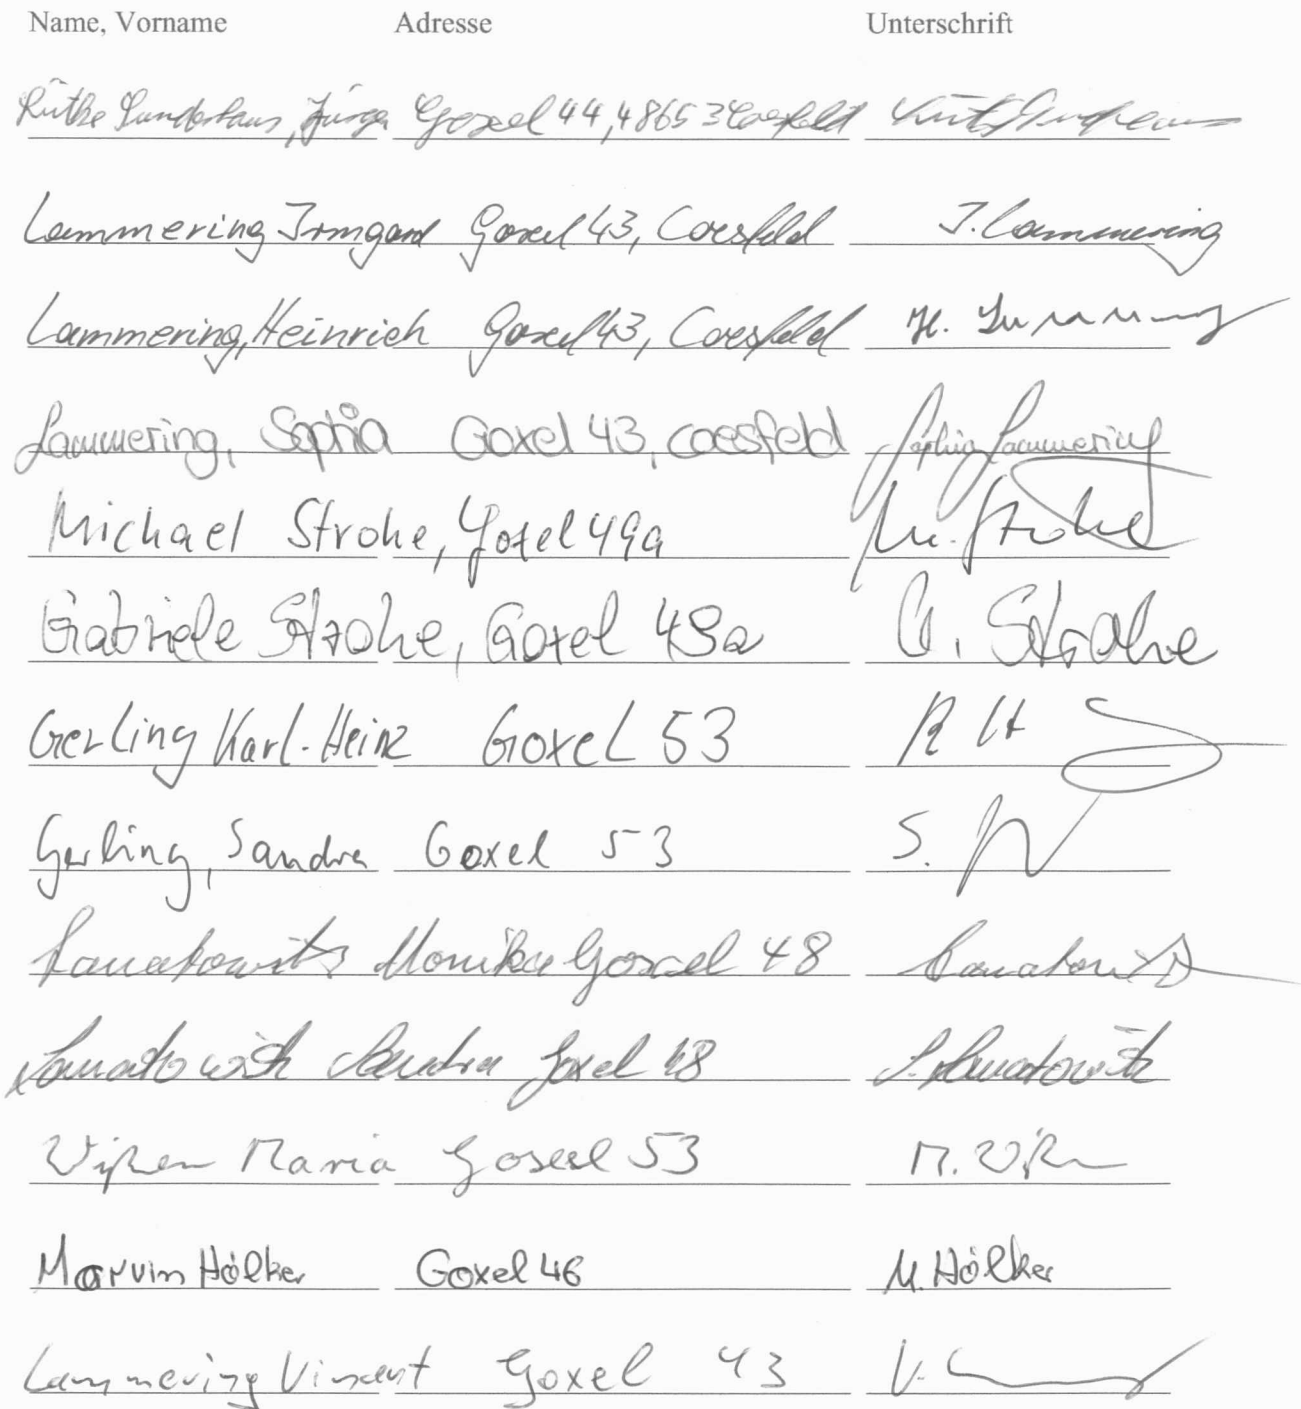 Name, Vorname Adresse Unterschrift
Jürgen Goxel 44, 48653 Coesfeld
Lammering Irmgard Goxel 43, Coesfeld I. Lammering
Lammering, Heinrich Goxel 43, Coesfeld H. Lammering
Lammering, Sophia Goxel 43, Coesfeld Sophia Lammering
Michael Strohe, Goxel 49a M. Strohe
Gabriele Strohe, Goxel 49a G. Strohe
Gerling Karl-Heinz Goxel 53
Gerling, Sandra Goxel 53 S.
Monika Goxel 48
Sandra Goxel 48
Maria Goxel 53 M.
Marvin Hölker Goxel 46 M. Hölker
Lammering Vincent Goxel 43 V.